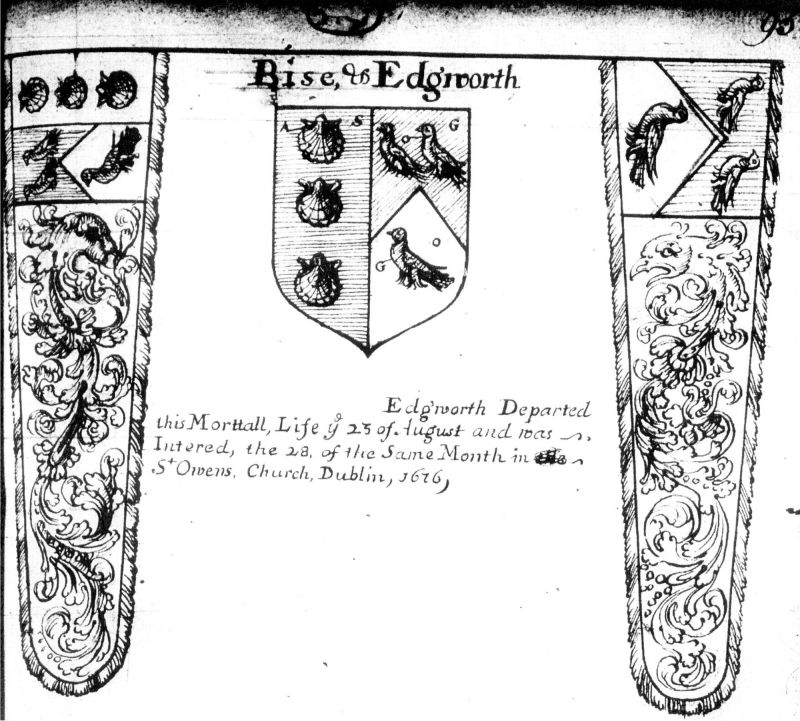 95
Bise, & Edgworth
A S G
O
O
G
Edgworth Departed
this Morttall, Life yͤ 25 of August and was
Intered, the 28, of the Same Month in
Sᵗ Owens, Church, Dublin, 1676,